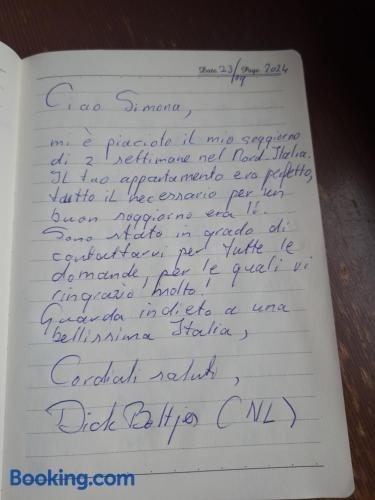 Date 23/09 Page 2024
Ciao Simona,
mi è piaciuto il mio soggiorno
di 2 settimane nel Nord Italia.
Il tuo appartamento era perfetto,
tutto il necessario per un
buon soggiorno era lì.
Sono stato in grado di
contattarvi per tutte le
domande, per le quali vi
ringrazio molto!
Guarda indieto a una
bellissima Italia,
Cordiali saluti,
Dick Boltjes (NL)
Booking.com